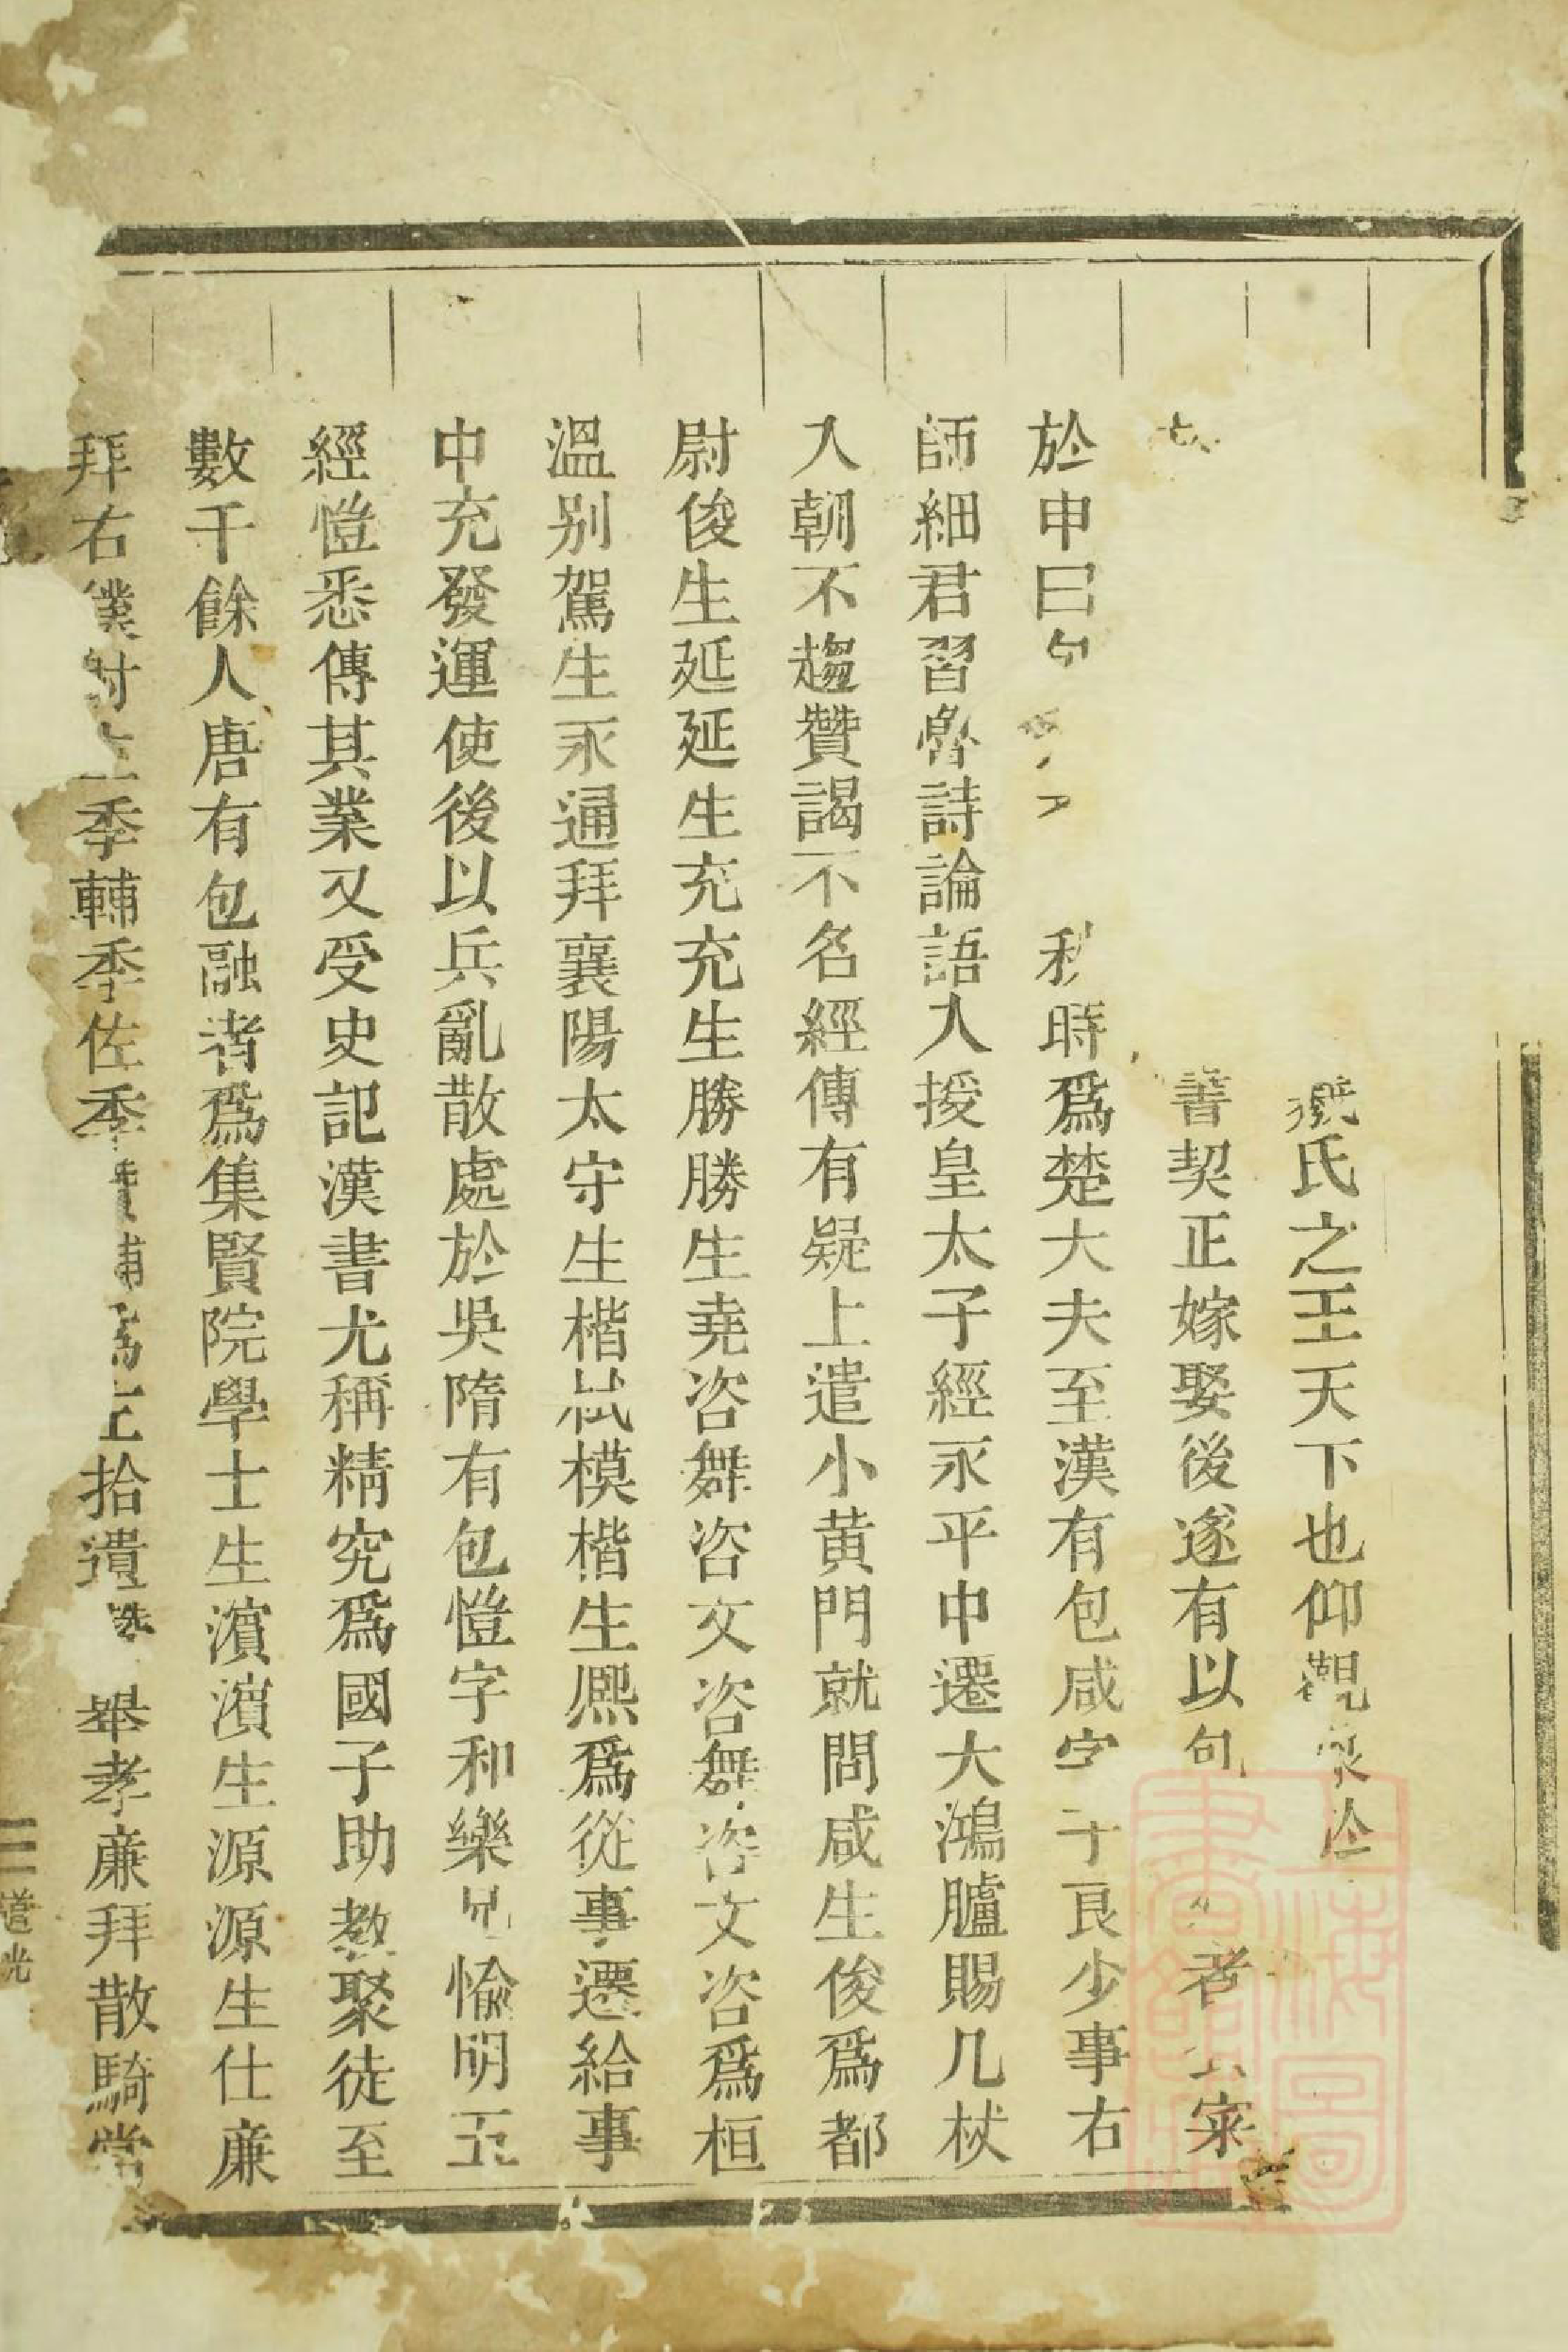 氏之王天下也仰觀
書契正嫁娶後遂有以者
於申曰時爲楚大夫至漢有包咸字子良少事右
師細君習魯詩論語入授皇太子經永平中遷大鴻臚賜几杖
入朝不趨贊謁不名經傳有疑上遣小黄門就問咸生俊爲都
尉俊生延延生充充生勝勝生堯咨舞咨文咨舞咨文咨爲桓
溫别駕生永通拜襄陽太守生楷栻模楷生熙爲從事遷給事
中充發運使後以兵亂散處於吳隋有包愷字和樂兄愉明五
經愷悉傳其業又受史記漢書尤稱精究爲國子助教聚徒至
數千餘人唐有包融者爲集賢院學士生濵濵生源源生仕廉
拜右僕射生季輔季佐季爲左拾遺舉孝廉拜散騎常
道光
上海圖書館藏